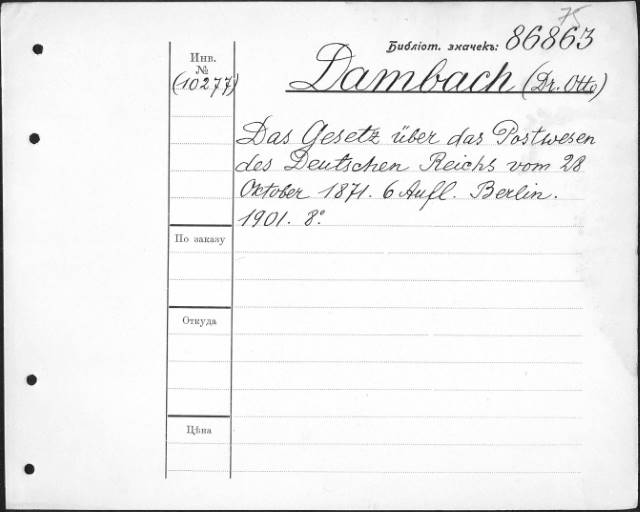 75
Библіот. значекъ: 86863
Инв.
№
(10277)
Dambach (Dr. Otto)
Das Gesetz über das Postwesen
des Deutschen Reichs vom 28
Oktober 1871. 6 Aufl. Berlin.
1901. 8°
По заказу
Откуда
Цѣна